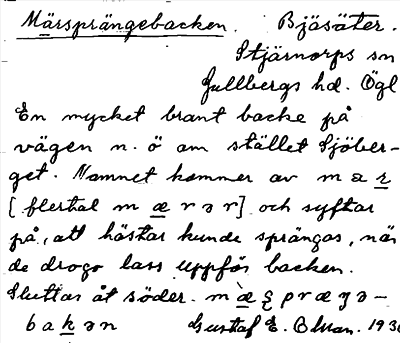 Märsprängebacken. Bjäsäter.
Stjärnorps sn
Gullbergs hd. Ögl
En mycket brant backe på
vägen n. ö om stället Sjöber-
get. Namnet kommer av m a r
[flertal m æ r ə r] och syftar
på, att hästar kunde sprängas, när
de drogo lass uppför backen.
Sluttar åt söder.
b a k ə n Gustaf E. 193